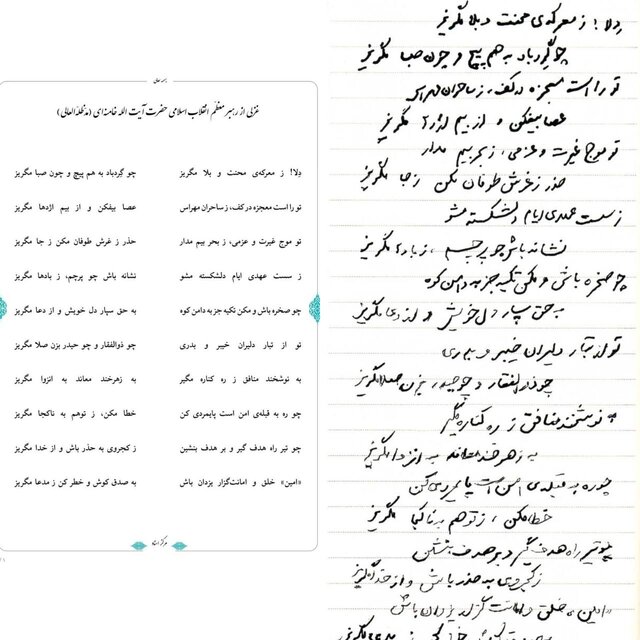 بسمه تعالی
غزلی از رهبر معظم انقلاب اسلامی حضرت آیت الله خامنه‌ای (مدظله‌العالی)
دلا! ز معرکه‌ی محنت و بلا مگریز چو گردباد به هم پیچ و چون صبا مگریز
تو را است معجزه در کف، ز ساحران مهراس عصا بیفکن و از بیم اژدها مگریز
تو موج غیرت و عزمی، ز بحر بیم مدار حذر ز غرش طوفان مکن ز جا مگریز
ز سست عهدی ایام دلشکسته مشو نشانه باش چو پرچم، ز بادها مگریز
چو صخره باش و مکن تکیه جز به دامن کوه به حق سپار دل خویش و از دعا مگریز
تو از تبار دلیران خیبر و بدری چو ذوالفقار و چو حیدر بزن صلا مگریز
به نوشخند منافق ز ره کناره مگیر به زهرخند معاند به انزوا مگریز
چو ره به قبله‌ی امن است پایمردی کن خطا مکن، ز توهم به ناکجا مگریز
چو تیر راه هدف گیر و بر هدف بنشین ز کجروی به حذر باش و از خدا مگریز
«امین» خلق و امانت‌گزار یزدان باش به صدق کوش و خطر کن ز مدعا مگریز
مرکز اسناد
دلا! ز معرکه‌ی محنت و بلا مگریز
چو گردباد به هم پیچ و چون صبا مگریز
تو را است معجزه در کف، ز ساحران مهراس
عصا بیفکن و از بیم اژدها مگریز
تو موج غیرت و عزمی، ز بحر بیم مدار
حذر ز غرش طوفان مکن ز جا مگریز
ز سست عهدی ایام دلشکسته مشو
نشانه باش چو پرچم، ز بادها مگریز
چو صخره باش و مکن تکیه جز به دامن کوه
به حق سپار دل خویش و از دعا مگریز
تو از تبار دلیران خیبر و بدری
چو ذوالفقار و چو حیدر، بزن صلا مگریز
به نوشخند منافق ز ره کناره مگیر
به زهرخند معاند به انزوا مگریز
چو ره به قبله‌ی امن است پایمردی کن
خطا مکن، ز توهم به ناکجا مگریز
چو تیر راه هدف گیر و بر هدف بنشین
ز کجروی به حذر باش و از خدا مگریز
«امین» خلق و امانت گزار یزدان باش